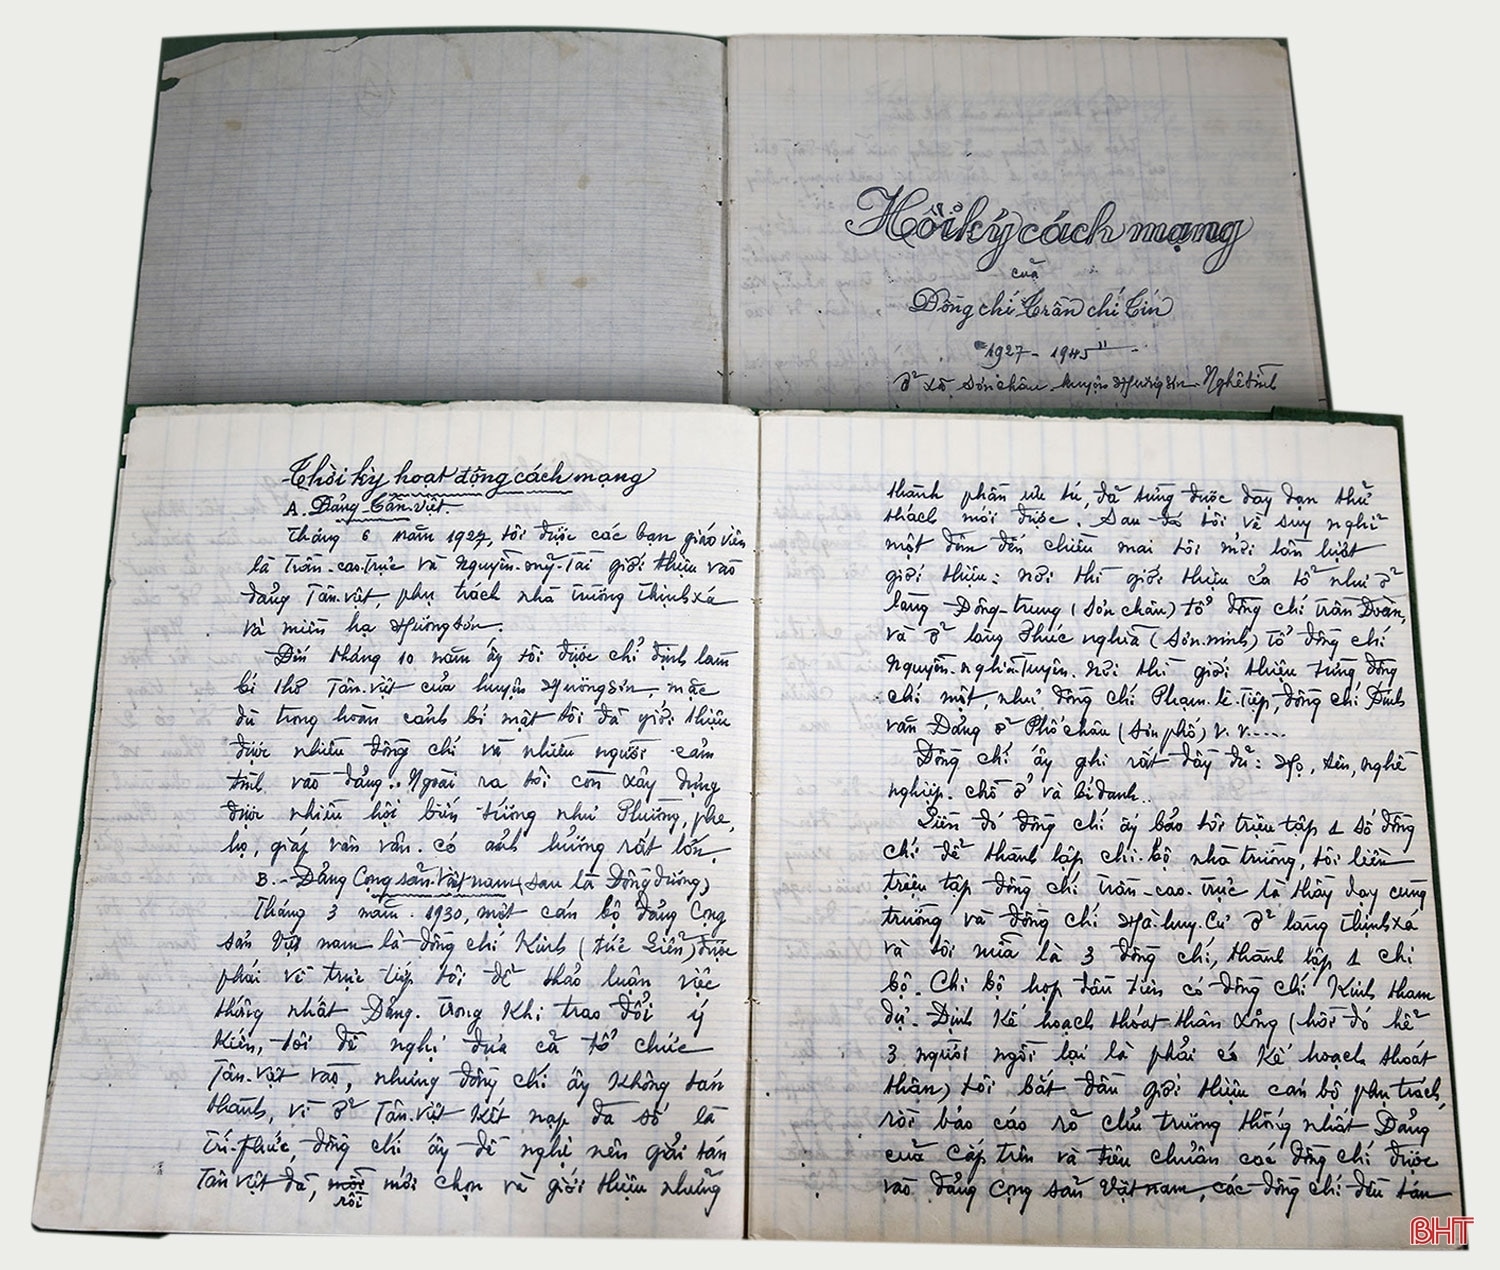 Hồi ký cách mạng
của
Đồng chí Trần chí Tín
"1927 - 1945"
Ở xã Sơn châu huyện Hương Sơn - Nghệ tĩnh
Thời kỳ hoạt động cách mạng
A. Đảng Tân Việt
Tháng 6 năm 1927, tôi được các bạn giáo viên
là Trần-cao-Trực và Nguyễn-mỹ-Tài giới thiệu vào
đảng Tân-việt, phụ trách nhà trường Thịnh xá
và miền hạ Hương Sơn.
Đến tháng 10 năm ấy tôi được chỉ định làm
bí thơ Tân-việt của huyện Hương Sơn, mặc
dù trong hoàn cảnh bí mật tôi đã giới thiệu
được nhiều đồng chí và nhiều người cảm
tình vào đảng. Ngoài ra tôi còn xây dựng
được nhiều hội biến tướng như Phường, phe,
họ, giáp vân vân. có ảnh hưởng rất lớn.
B. - Đảng Cộng sản Việt nam (sau là Đông dương)
Tháng 3 năm 1930, một cán bộ đảng Cộng
sản Việt nam là đồng chí Kính (tức Liễn) được
phái về trực tiếp tôi để thảo luận việc
thống nhất Đảng. Trong khi trao đổi ý
kiến, tôi đề nghị đưa cả tổ chức
Tân-Việt vào, nhưng đồng chí ấy không tán
thành, vì ở Tân-Việt kết nạp đa số là
Trí-thức, đồng chí ấy đề nghị nên giải tán
Tân Việt đã, rồi mới chọn và giới thiệu những
thành phần ưu tú, đã từng được dày dạn thử
thách mới được. Sau đó tôi về suy nghĩ
một đêm đến chiều mai tôi mới lần lượt
giới thiệu: nơi thì giới thiệu cả tổ như ở
làng Đông-trung (Sơn châu) tổ đồng chí Trần Đoàn,
và ở làng Phúc nghĩa (Sơn minh) tổ đồng chí
Nguyễn-nghĩa-Tuyên. Nơi thì giới thiệu từng đồng
chí một, như đồng chí Phạm-lê-Tiếp, đồng chí Đinh
văn Đảng ở Phố châu (Sơn phố) v.v.....
Đồng chí ấy ghi rất đầy đủ: Họ, tên, nghề
nghiệp, chỗ ở và bí danh..
Liền đó đồng chí ấy bảo tôi triệu tập 1 số đồng
chí để thành lập chi-bộ nhà trường, tôi liền
triệu tập đồng chí Trần-cao-Trực là thầy dạy cùng
trường và đồng chí Hà-huy-Cừ ở làng Thịnh xá
và tôi nữa là 3 đồng chí, thành lập 1 chi
bộ. Chi bộ họp đầu tiên có đồng chí Kính tham
dự. Định kế hoạch thoát thân xong (hồi đó hễ
3 người ngồi lại là phải có kế hoạch thoát
thân) tôi bắt đầu giới thiệu cán bộ phụ trách,
rồi báo cáo rõ chủ trương thống nhất Đảng
của cấp trên và tiêu chuẩn các đồng chí được
vào đảng Cộng sản Việt nam, các đồng chí đều tán
BHT